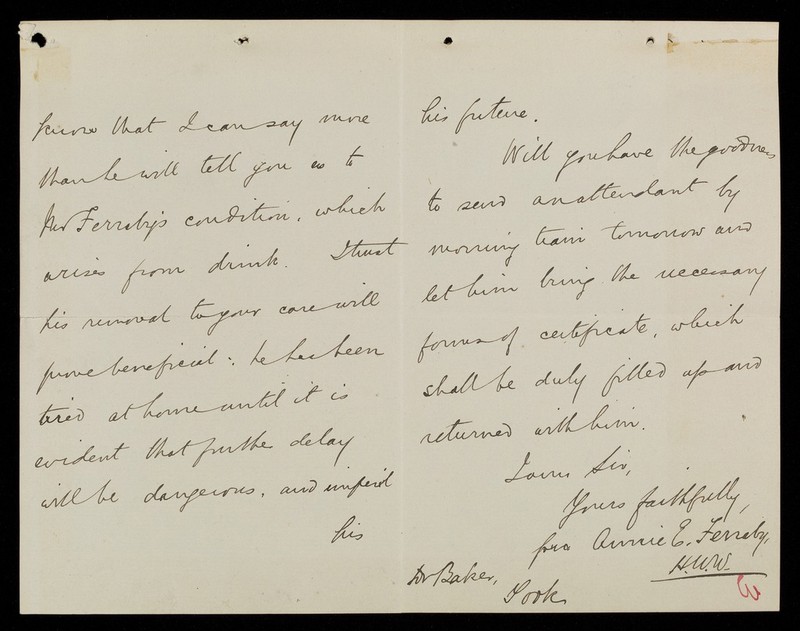 know that I can say more
than he will tell you as to
Mr Ferraby's condition, which
arises from drink. I trust
his removal to your care will
prove beneficial: he has been
tried at home until it is
evident that further delay
will be dangerous, and imperil
his
his future.
Will you have the goodness
to send an attendant by
morning train tomorrow and
let him bring the necessary
forms of certificate, which
shall be duly filled up and
returned with him.
I am Sir,
Yours faithfully,
pro Annie E. Ferraby,
H.W.W.
Dr Baker,
York